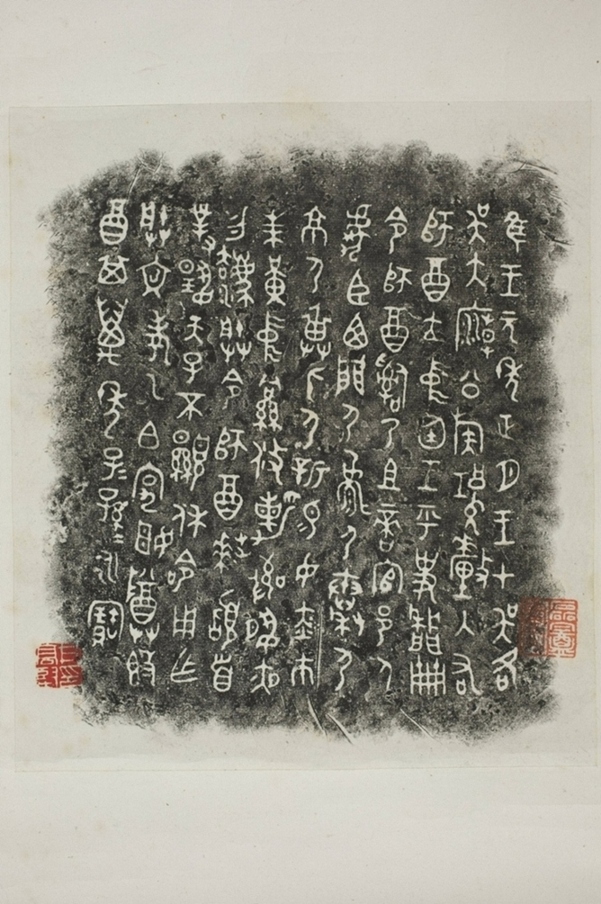 隹王元年正月王才吳各
吳大廟公族釐入右
師酉立中廷王乎史冊
令師酉𤔲乃且啻官邑人
虎臣西門尸尸秦尸
京尸尸新易女赤巿
朱黃中攸勒敬夙夜勿
灋朕令師酉拜𩒨首
對揚天子不顯休令用乍
朕文考乙白宄姬尊𣪘
酉其萬年子子孫孫永寶